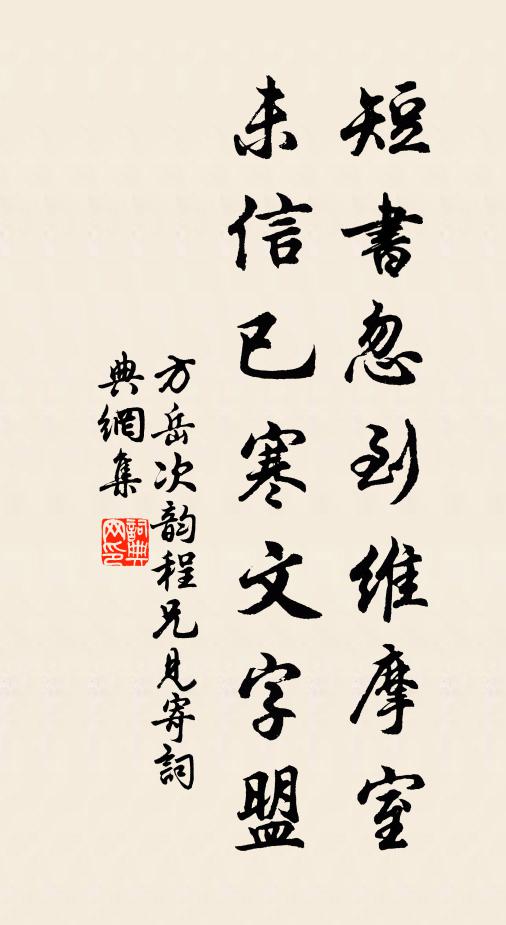 短書忽到維摩室
未信已寒文字盟
方岳次韵程兄見寄詞
典網集
詞典網印